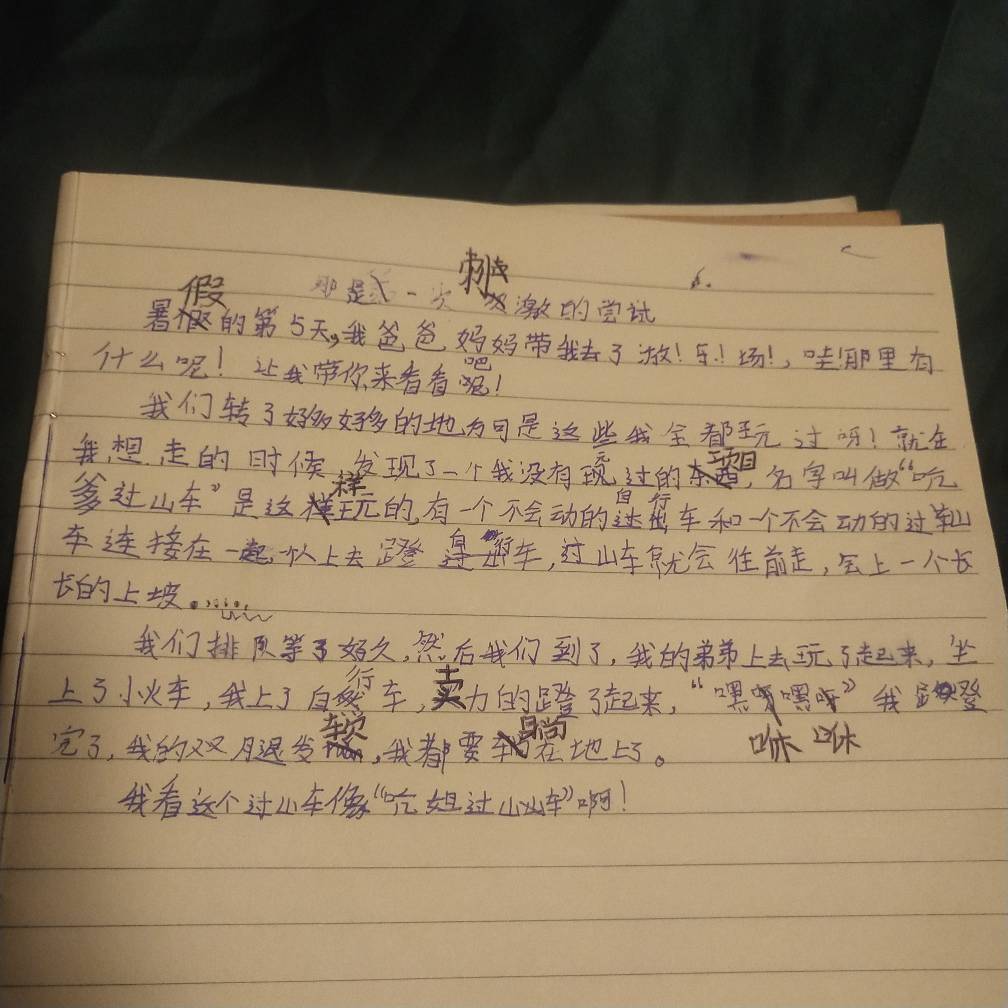 那是一次刺激的尝试
暑假的第5天,我爸爸妈妈带我去了游!乐!场!,哇!那里有
什么呢!让我带你来看看吧!
我们转了好多好多的地方可是这些我全都玩过呀!就在
我想走的时候发现了一个我没有玩过的项目,名字叫做“吭
爹过山车”是这样玩的,有一个不会动的自行车和一个不会动的过山
车连接在一起个以上去蹬自行车,过山车就会往前走,会上一个长
长的上坡……
我们排队等了好久,然后我们到了,我的弟弟上去玩了起来,坐
上了小火车,我上了自行车,卖力的蹬了起来,“嘿咻嘿咻”我蹬
完了,我的双腿发软,我都要躺在地上了。
我看这个过山车像“吭姐过山车”啊!